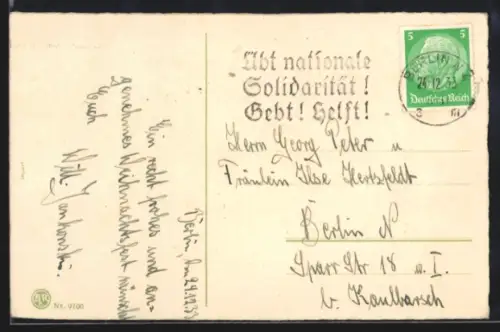 Übt nationale
Solidarität!
Gebt! Helft!
5 5
Deutsches Reich
BERLIN N
24.12.33
Herrn Georg Peter u
Fräulein Ilse Hertsfeldt
Berlin N
Sparr Str 18 I.
b. Kaulbarsch
Berlin, den 24.12.33
Ein recht frohes und an-
genehmes Weihnachtsfest wünscht
Euch
Willi Jankowski.
Nr. 9766